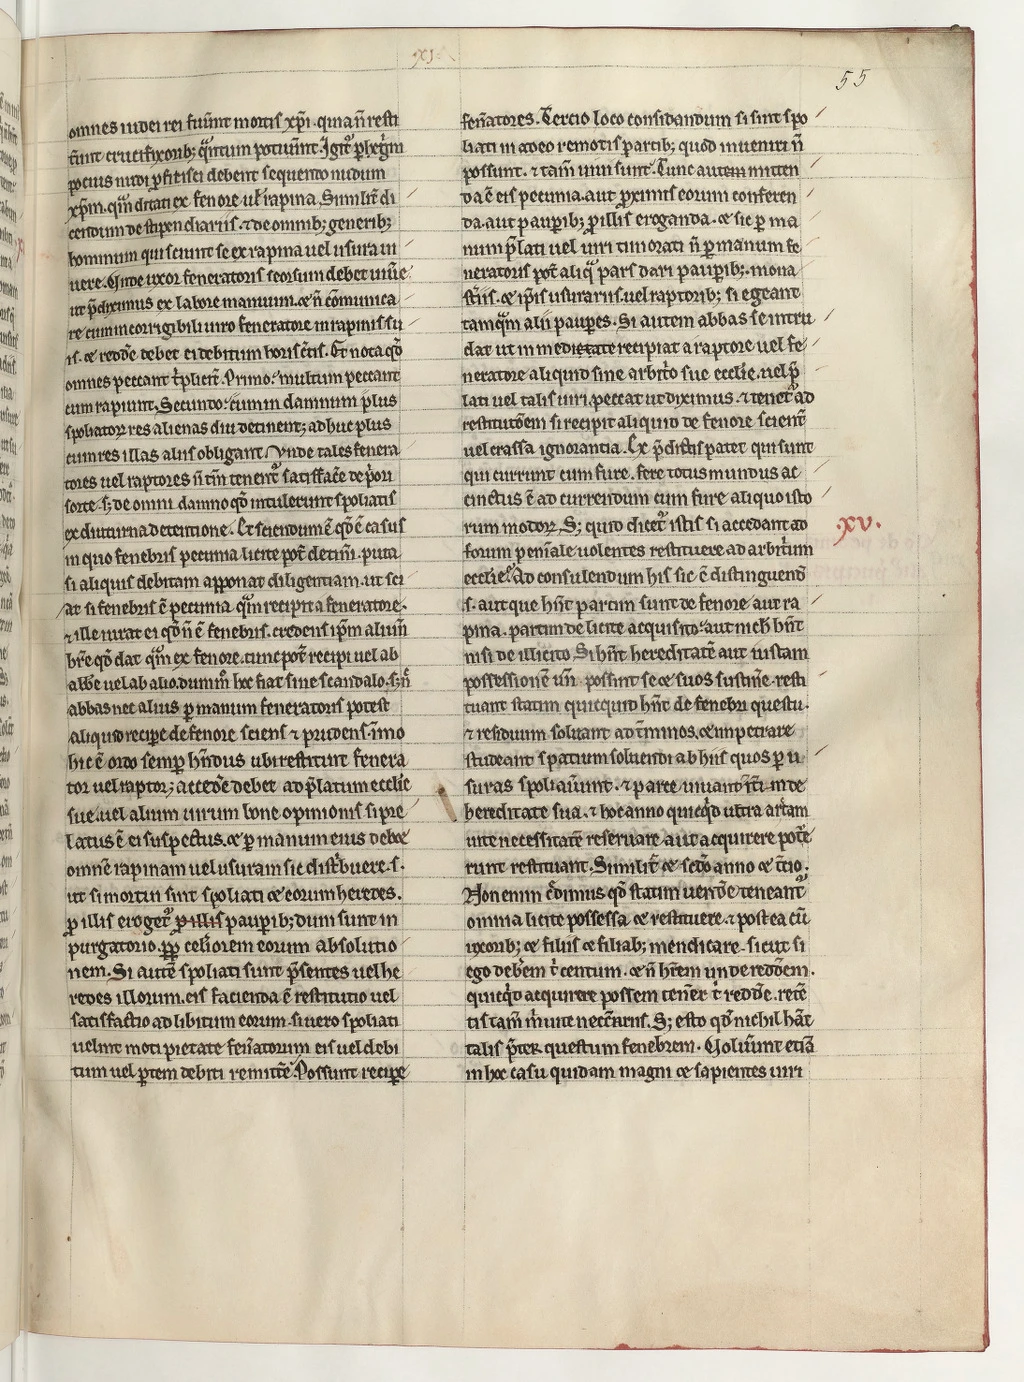 .xj.
55
omnes iudei rei fuer̄unt mortis xp̄i. quia n̄ resti
terunt crucifixorib; q̄ntum potuer̄unt. Igit᷑ p̄hegm̄
pocius nudi p̄ficisci debent sequendo nudum
xp̄m. q̄m ditati ex fenore ul̓ rapina. Similit̓ di
cendum de stipendiariis. ⁊ de omnib; generib;
hominum qui sciunt se ex rapina uel usura ui
uere. Unde uxor feneratoris seorsum debet uiue᷑
ut p̄diximus ex labore manuum. ⁊ n̄ cōmunica
re cum incorrigibili uiro feneratore in rapinis su
is. ⁊ redde᷑ debet ei debitum horis c̄tis. Et nota q̄d
omnes peccant t̓plicit̓. Primo: multum peccant
cum rapiunt. Secundo: cum in damnum plus
spoliatoꝝ res alienas diu detinent; adhuc plus
cum res illas aliis obligant. Vnde tales fenera
tores uel raptores n̄ tm̄ tenent᷑ satisface᷑ de p̄ori
sorte. s; de omni damno q̄d intulerunt spoliatis
ex diuturna detentione. Et sciendum ē q̄d ē casus
in quo fenebris pecunia licite pot̄ detin̄i. puta
si aliquis debitam apponat diligentiam. ut sci
at si fenebris ē pecunia q̄m recipit a feneratore.
⁊ ille iurat ei q̄d n̄ ē fenebris. credens ip̄m alium̄
br̄e q̄d dat q̄m ex fenore. tunc pot̄ recipi uel ab
abb̄e uel ab alio. dum m̊ hoc fiat sine scandalo. s; n̄
abbas nec alius p̱ manum feneratoris potest
aliquid recipe᷑ de fenore sciens ⁊ prudens. imo
hic ē ordo semp̱ hn̄dus ubi restituit fenera
tor uel raptor; accede᷑ debet ad p̄latum ecclīe
sue. uel alium uirum bone opinionis si pre
latus ē ei suspectus. ⁊ p̱ manum eius debet
omnē rapinam uel usuram sic dist̓buere. s.
ut si mortui sint spoliati ⁊ eorum heredes.
p̱ illis eroget᷑ p̱ illis paupib; dum sunt in
purgatorio. ꝓp̱ celiorem eorum absolutio
nem. Si autē spoliati sunt p̄sentes uel he
redes illorum. eis facienda ē restitutio uel
satisfactio ad libitum eorum. si uero spoliati
uelint moti pietate fen̄atorum eis uel debi
tum uel p̱tem debiti remitte᷑. Possunt recipe᷑
fen̄atores. Tercio loco considandum si sint spo
liati in adeo remotis partib; quod inueniri n̄
possunt. ⁊ tam̄ uiui sunt. Tunc autem mitten
da ē eis pecunia. aut proximis eorum conferen
da. aut paupib; p̱ illis eroganda. ⁊ sic p̱ ma
num p̄lati uel uiri timorati n̄ p̱ manum fe
neratoris pot̄ aliq̄ pars dari paupib;. mona
st̓iis. ⁊ ip̄is usurariis. uel raptorib; si egeant
tamq̄m alii paupes. Si autem abbas se intru
dat ut in medietate recipiat a raptore uel fe
neratore aliquid sine arbitrio sue ecclīe. uel p̄
lati uel talis uiri. peccat ut diximus. ⁊ tenet᷑ ad
restitutōem si recipit aliquid de fenore scient̓
uel crassa ignorantia. Ex p̄dictis patet qui sunt
qui currunt cum fure. fere totus mundus ac
cinctus ē ad currendum cum fure aliquo isto
rum modoꝝ. S; quid dicet᷑ istis si accedant ad
.xv.
forum penīale uolentes restituere ad arbitrium
ecclīe. Ad consulendum his sic ē distinguend̄
s. aut que hn̄t partim sunt de fenore aut ra
pina. partim de licite acquisito. aut nich̓ hn̄t
nisi de illicito. Si hn̄t hereditatē aut iustam
possessionē un̄ possint se ⁊ suos sustine᷑. resti
tuant statim quicquid hn̄t de fenebri questu.
⁊ residuum soluant ad t̓minos. ⁊ impetrare
studeant spatium soluendi ab hiis quos p̱ u
suras spoliauer̄unt. ⁊ parce uiuant isti inde
hereditate sua. ⁊ hoc anno quicq̓d ultra artam
uite necessitatē reseruare aut acquirere pote᷑
runt restituant. Similit̓ ⁊ sc̄do anno ⁊ t̓cio.
Non enim c̄dimus q̄d statim uende᷑ teneant᷑
omnia licite possessa ⁊ restituere. ⁊ postea cū
uxorib; ⁊ filiis ⁊ filiab; mendicare. sicut si
ego deb̄em t̓ centum. ⁊ n̄ hr̄em unde redd̄em.
quicq̓d acquirere possem tener̄ t̓ redde᷑. rete
tis tam̄ m̊ uite neccāriis. S; esto q̄d nichil hab̄at
talis p̄ter questum fenebrem. Uoluer̄unt etiā
in hoc casu quidam magni ⁊ sapientes uiri